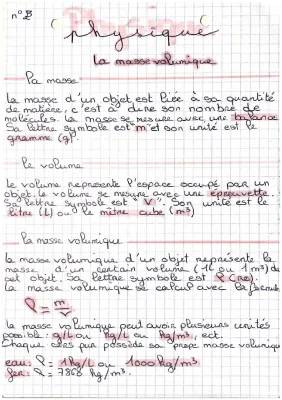 n°2
physique
la masse volumique
la masse
la masse d'un objet est liée à sa quantité
de matière, c'est à dire son nombre de
molécules. la masse se mesure avec une balance
Sa lettre symbole est "m" et son unité est le
gramme (g).
le volume
le volume represente l'espace occupé par un
objet. le volume se mesure avec une éprouvette.
Sa lettre symbole est "V". Son unité est le
litre (L) ou le mètre cube (m³)
la masse volumique
la masse volumique d'un objet représente la
masse d'un certain volume (1L ou 1m³) de
cet objet. Sa lettre symbole est ρ (rho).
la masse volumique se calcul avec la formule
ρ = m/v
la masse volumique peut avoir plusieurs unités
possible: g/L ou kg/L ou kg/m³, ect.
Chaque corps pur possède sa propre masse volumique
eau: ρ = 1kg/L ou 1000 kg/m³.
fer: ρ = 7868 kg/m³.